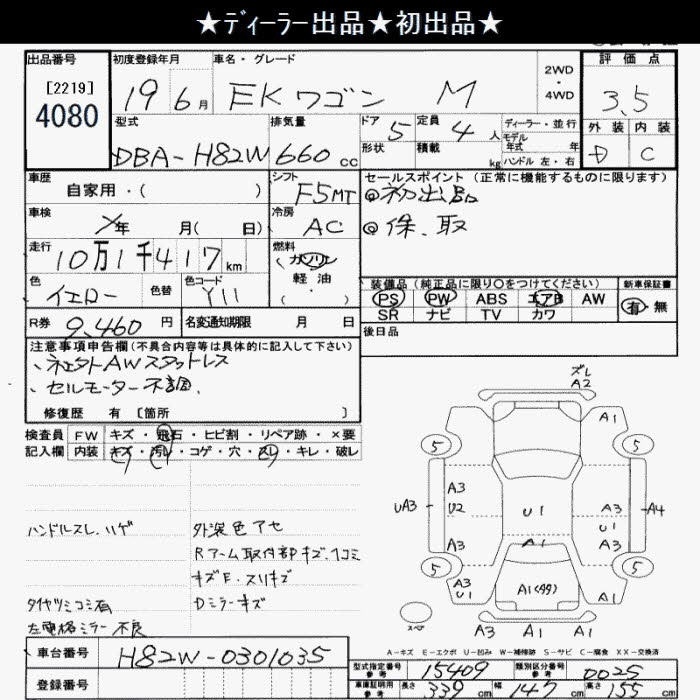 ★ディーラー出品★初出品★
出品番号
[2219]
4080
初度登録年月
19年 6月
車名・グレード
EKワゴン M
2WD・4WD
評価点
3.5
外装 内装
D C
型式
DBA-H82W
排気量
660 cc
ドア 5
形状
定員 4人
積載 kg
ディーラー・並行
モデル年式 年
ハンドル 左・右
車歴
自家用・( )
シフト
F5MT
セールスポイント(正常に機能するものに限ります)
◎初出品
◎保、取
車検
年 月( 日)
冷房
AC
走行
10万1千417km
燃料
ガソリン
軽油
( ・ )
色
イエロー
色替
色コード
Y11
装備品(純正品に限り○をつけてください)
PS PW ABS エアB AW
SR ナビ TV カワ
新車保証書
有・無
R券 9,460円
名変通知期限 月 日
後日品
注意事項申告欄(不具合内容等は具体的に記入して下さい)
、社外AWスタットレス
、セルモーター不調、
修復歴 有 [箇所 ]
検査員記入欄
FW キズ・飛石・ヒビ割・リペア跡・×要
内装 キズ・汚レ・コゲ・穴・スレ・キレ・破レ
ハンドルスレ、ハゲ
外装色アセ
Rアーム取付部キズ、ヘコミ
キズE・スリキズ
タイヤツミコミ有
Dミラーキズ
左電格ミラー不良
ズレ
A2
A1 A1
5 5
A3 U2 A3
UA3 U1 A3 U1 A4
A3 A1 A3
5 5
A3 U1 A1(99) A1
スペ
A3 A1 A1
A-キズ E-エクボ U-凹み W-補修跡 S-サビ C-腐食 XX-交換済
車台番号
H82W-0301035
登録番号
型式指定番号 参考
15409
類別区分番号 参考
0025
車庫証明用 参考
長さ 339cm 幅 147cm 高さ 155cm